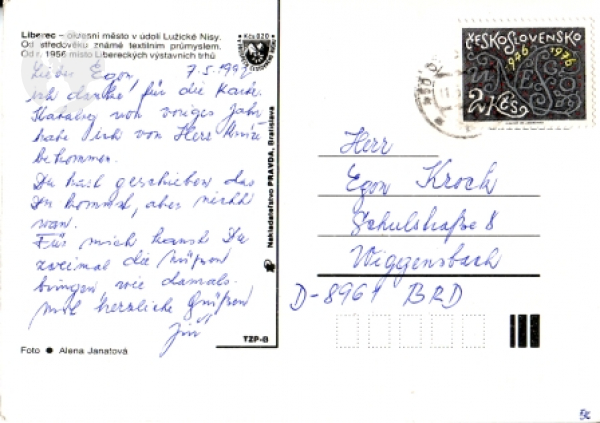 Liberec – okresní město v údolí Lužické Nisy.
Od středověku známé textilním průmyslem.
Od r. 1956 místo Libereckých výstavních trhů
Kčs 0,20
7.5.1992
Lieber Egon,
ich danke für die Karte.
Katalog von voriges Jahr
habe ich von Herr
bekommen.
Du hast geschieben das
Du kommst, aber nichh
war.
Für mich kanst Du
zweimal die
bringen, wie damals.
mit herzliche Grüßen
Jiří
Foto ● Alena Janatová
Nakladatelstvo PRAVDA, Bratislava
TZP-B
ČESKOSLOVENSKO
1976
2 Kčs
Herr
Egon Kroch
Schulstraße 8
Wiggensbach
D-8961 BRD